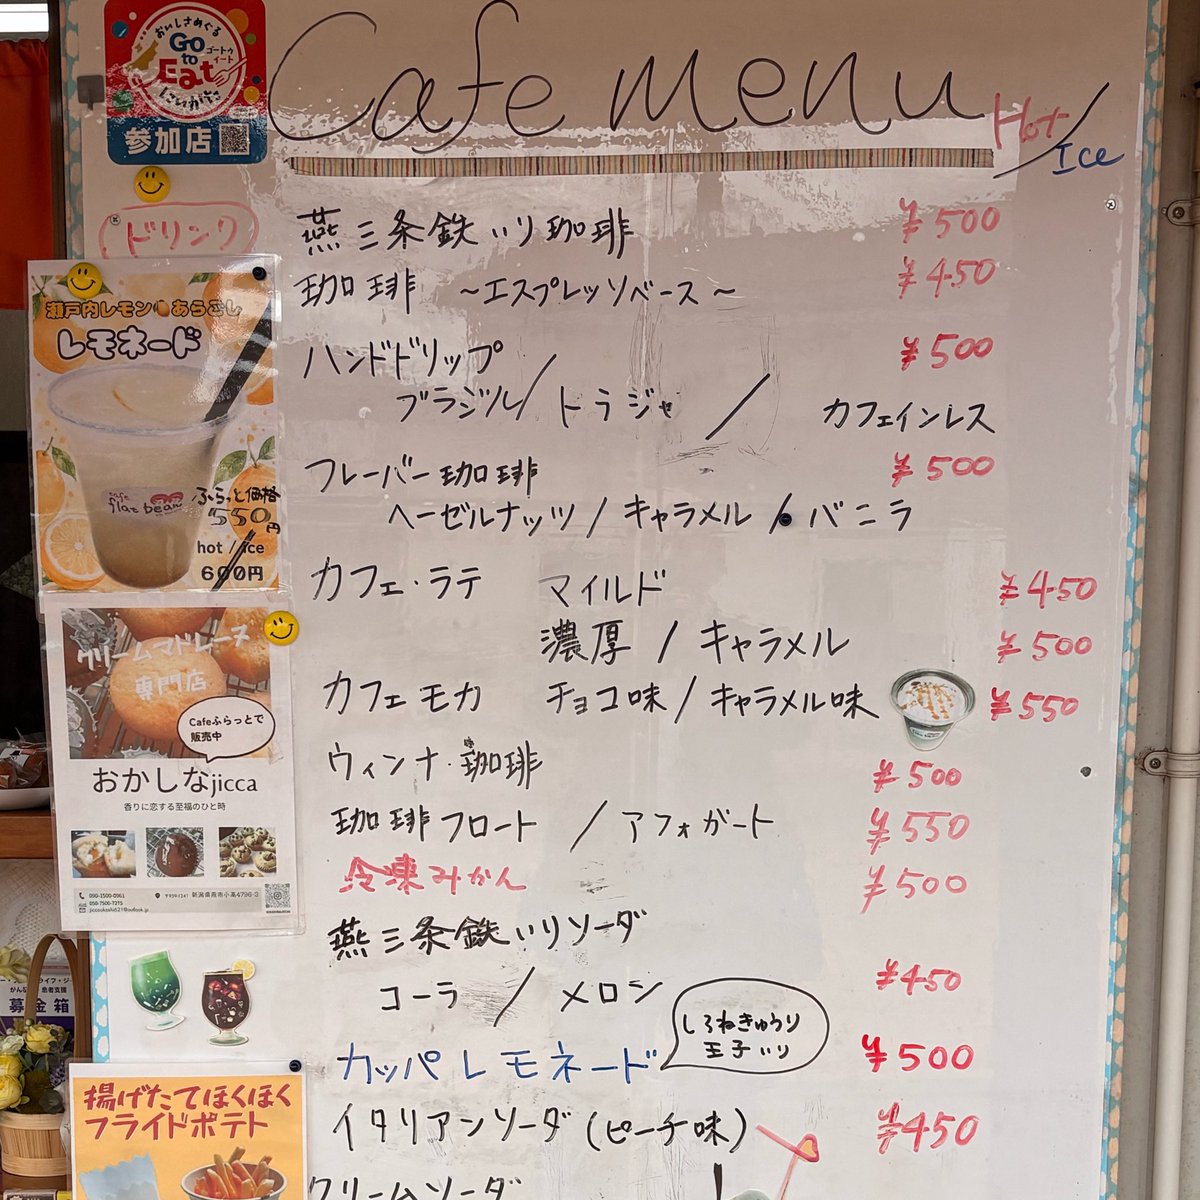 おいしさめぐる
Go to Eat
ゴートゥイート
にいがた
参加店
Cafe menu
Hot / Ice
ドリンク
燕三条鉄いり珈琲 ¥500
珈琲 ～エスプレッソベース～ ¥450
ハンドドリップ ¥500
ブラジル / トラジャ / カフェインレス
フレーバー珈琲 ¥500
ヘーゼルナッツ / キャラメル / バニラ
カフェ・ラテ マイルド ¥450
濃厚 / キャラメル ¥500
カフェモカ チョコ味 / キャラメル味 ¥550
ウィンナ・珈琲 ¥500
珈琲フロート / アフォガート ¥550
冷凍みかん ¥500
燕三条鉄いりソーダ
コーラ / メロン ¥450
しろねきゅうり
王子いり
カッパレモネード ¥500
イタリアンソーダ (ピーチ味) ¥450
クリームソーダ
瀬戸内レモン あらごし
レモネード
cafe
flat bean
ふらっと価格
550円
hot / ice
600円
クリームマドレーヌ
専門店
Cafeふらっとで
販売中
おかしなjicca
香りに恋する至福のひと時
090-1500-0961
050-7500-7275
〒959-1241 新潟県燕市小高4796-3
募金箱
揚げたてほくほく
フライドポテト